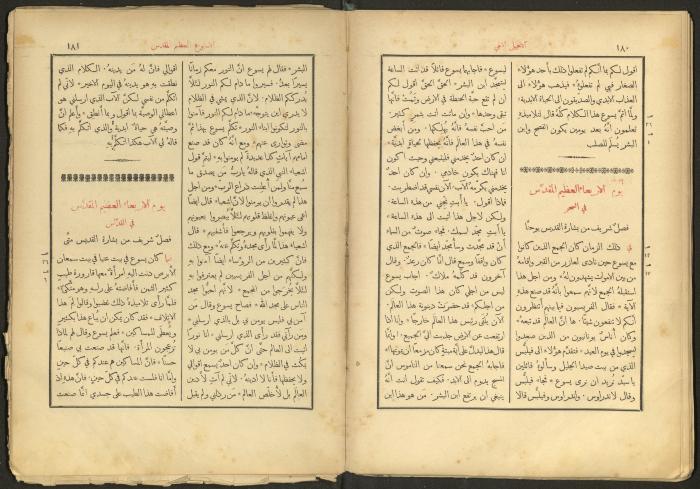 ١٨٠
الانجيل الالهي
اقول لكم بما انكم لم تفعلوا ذلك بأحد هؤلاء
الصغار فبي لم تفعلوهُ * فيذهب هؤلاء الى
العذاب الابدي والصديقون الى الحياة الابدية *
ولمَّا أتمَّ يسوع هذا الكلام كلهُ قال لتلاميذهِ
تعلمون انهُ بعد يومين يكون الفصح وابن
البشر يُسلم للصلب
يوم الاربعاء العظيم المقدَّس
في السحر
فصلٌ شريف من بشارة القديس يوحنَّا
في ذلك الزمان كان الجمع الذين كانوا
مع يسوع حين نادى لعازر من القبر واقامهُ
من بين الاموات يشهدون لهُ * ومن اجل هذا
استقبلهُ الجمع لانهم سمعوا بأنهُ قد صنع هذهِ
الآية * فقال الفريسيون فيما بينهم أتنظرون
أنكم لا تنفعون شيئًا * ها انَّ العالم قد تبعهُ *
وكان أُناسٌ يونانيون من الذين صعدوا
ليسجدوا في يوم العيد * فتقدَّم هؤلاء الى فيلبس
الذي من بيت صيدا الجليل وسألوهُ قائلين
يا سيّد نريد ان نرى يسوع * فجاء فيلبُّس
وقال لاندراوس * واندراوس وفيلبُّس قالا
ليسوع * فاجابهما يسوع قائلًا قد أتت الساعة
ليتمجد ابن البشر * الحقَّ الحقَّ اقول لكم
ان لم تقع حبَّة الحنطة في الارض وتَمُت فانَّها
تبقى وحدها * وإن ماتت أتت بثمرٍ كثير *
من احبَّ نفسهُ فانَّهُ يهلكها * ومن أبغض
نفسهُ في هذا العالم فانَّهُ يحفظها لحياةٍ ابديَّة *
ان كان احدٌ يخدمني فليتبعني وحيث اكون
انا فهناك يكون خادمي * وإن كان احدٌ
يخدمني يكرّمهُ الآب * الآن نفسي قد اضطربت *
فماذا اقول * يا أبتِ نجّني من هذه الساعة *
ولكن لاجل هذا أتيت الى هذه الساعة *
يا أبتِ مجّد اسمك * فجاء صوتٌ من السماء
أن قد مجَّدت وسأمجّد ايضًا * فالجمع الذي
كان واقفًا وسمع قال انَّما كان رعدٌ * وقال
آخرون قد كلَّمهُ ملاك * اجاب يسوع
ليس من اجلي كان هذا الصوت ولكن
من اجلكم * قد حضرت دينونة هذا العالم *
الآن يُلقى رئيس هذا العالم خارجًا * وانا اذا
ارتفعت عن الارض جذبت اليَّ الجميع * وانَّما
قال هذا ليدلَّ على أيَّة ميتةٍ كان مزمعًا أن يموتها *
فاجابهُ الجمع نحن سمعنا من الناموس انَّ
المسيح يدوم الى الابد * فكيف تقول انت انَّهُ
ينبغي ان يرتفع ابن البشر * مَن هو هذا ابن
الاسبوع العظيم المقدس
١٨١
البشر * فقال لهم يسوع انَّ النور معكم زمانًا
يسيرًا بعدُ * فسيروا ما دام لكم النور لئلَّا
يدرككم الظلام * لانَّ الذي يمشي في الظلام
لا يدري اين يتوجه * ما دام لكم النور فآمنوا
بالنور لتكونوا ابناء النور * تكلَّم يسوع بهذا ثمَّ
مضى وتوارى عنهم * ومع انَّهُ كان قد صنع
امامهم آياتٍ كذا عديدة لم يؤمنوا بهِ * ليتمَّ قول
اشعياء النبي الذي قالهُ يا ربُّ من صدَّق ما
سُمع منَّا ولمن أُعلنت ذراع الرب * ومن اجل
هذا لم يقدروا ان يؤمنوا لانَّ اشعياء قال ايضًا
اعمى عيونهم وغلَّظ قلوبهم لئلَّا يبصروا بعيونهم
ولا يفهموا بقلوبهم ويرجعوا فأشفيهم * قال
اشعياء هذا لمَّا رأى مجدهُ وتكلَّم عنهُ * ومع ذلك
فانَّ كثيرين من الرؤساء ايضًا آمنوا بهِ
ولكنَّهم من اجل الفريسيين لم يعترفوا بهِ
لئلَّا يُخرَجوا من المجمع * لانَّهم احبُّوا مجد
الناس على مجد الله * فصاح يسوع وقال من
آمن بي فليس يؤمن بي بل بالذي ارسلني *
ومن رآني فقد رأى الذي ارسلني * انا نورًا
أتيت الى العالم حتَّى انَّ كلَّ من يؤمن بي لا
يمكث في الظلام * وإن كان احدٌ يسمع اقوالي
ولا يحفظها فأنا لا ادينهُ * لاني لم آتِ لأدين
العالم بل لأخلّص العالم * من رذلني ولم يقبل
اقوالي فانَّ لهُ من يدينهُ * الكلام الذي
نطقت بهِ هو يدينهُ في اليوم الاخير * لاني لم
اتكلَّم من نفسي لكنَّ الآب الذي ارسلني هو
اعطاني الوصيَّة بما اقول وبما أنطق * واعلم انَّ
وصيَّتهُ هي حياةٌ ابديَّة والذي اتكلَّم بهِ فكما
قالهُ لي الآب هكذا اتكلَّم بهِ
يوم الاربعاء العظيم المقدَّس
في القدَّاس
فصلٌ شريف من بشارة القديس متَّى
لما كان يسوع في بيت عنيا في بيت سمعان
الابرص دنت اليهِ امرأةٌ معها قارورة طيبٍ
كثير الثمن فأفاضتهُ على رأسهِ وهو متَّكئٌ *
فلمَّا رأى تلاميذهُ ذلك غضبوا وقالوا لمَ هذا
الإتلاف * فقد كان يمكن ان يُباع هذا بكثيرٍ
ويُعطى للمساكين * فعلم يسوع وقال لهم لماذا
تزعجون المرأة * فانَّها قد صنعت بي صنيعًا
حسنًا * فانَّ المساكين هم عندكم في كلّ حينٍ
وأمَّا انا فلست عندكم في كلّ حين * فانَّ هذه اذ
أفاضت هذا الطيب على جسدي انَّما صنعت